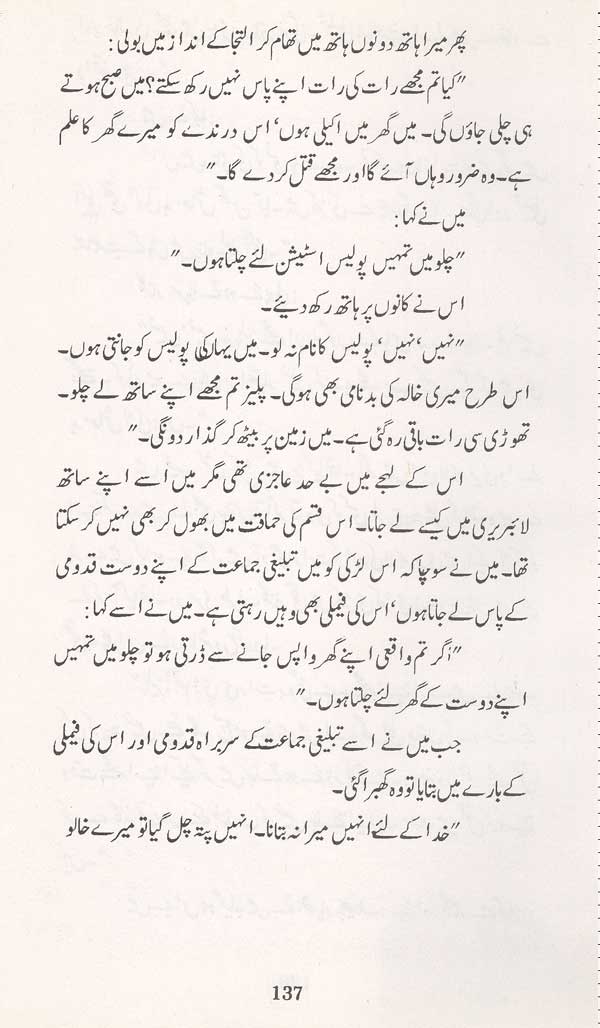 پھر میرا ہاتھ دونوں ہاتھ میں تھام کر التجا کے انداز میں بولی :
"کیا تم مجھے رات کی رات اپنے پاس نہیں رکھ سکتے؟ میں صبح ہوتے
ہی چلی جاؤں گی۔ میں گھر میں اکیلی ہوں' اس درندے کو میرے گھر کا علم
ہے۔ وہ ضرور وہاں آئے گا اور مجھے قتل کر دے گا۔"
میں نے کہا :
"چلو میں تمہیں پولیس اسٹیشن لئے چلتا ہوں۔"
اس نے کانوں پر ہاتھ رکھ دیئے۔
"نہیں' نہیں' پولیس کا نام نہ لو۔ میں یہاں کی پولیس کو جانتی ہوں۔
اس طرح میری خالہ کی بدنامی بھی ہوگی۔ پلیز تم مجھے اپنے ساتھ لے چلو۔
تھوڑی سی رات باقی رہ گئی ہے۔ میں زمین پر بیٹھ کر گذار دونگی۔"
اس کے لہجے میں بے حد عاجزی تھی مگر میں اسے اپنے ساتھ
لائبریری میں کیسے لے جاتا۔ اس قسم کی حماقت میں بھول کر بھی نہیں کر سکتا
تھا۔ میں نے سوچا کہ اس لڑکی کو میں تبلیغی جماعت کے اپنے دوست قدومی
کے پاس لے جاتا ہوں' اس کی فیملی بھی وہیں رہتی ہے۔ میں نے اسے کہا :
"اگر تم واقعی اپنے گھر واپس جانے سے ڈرتی ہو تو چلو میں تمہیں
اپنے دوست کے گھر لئے چلتا ہوں۔"
جب میں نے اسے تبلیغی جماعت کے سربراہ قدومی اور اس کی فیملی
کے بارے میں بتایا تو وہ گھبرا گئی۔
"خدا کے لئے انہیں میرا نہ بتانا۔ انہیں پتہ چل گیا تو میرے خالو
137